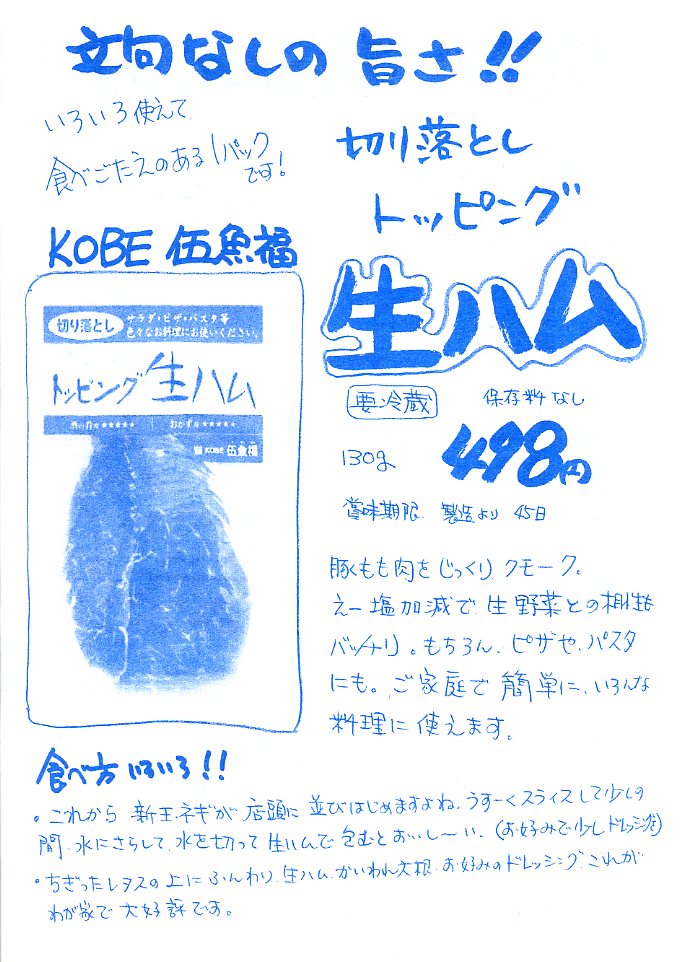 文句なしの旨さ!!
いろいろ使えて
食べごたえのある1パック
です!
切り落とし
トッピング
生ハム
KOBE 伍魚福
切り落とし
サラダ・ピザ・パスタ等
色々なお料理にお使いください。
トッピング生ハム
酒の肴は★★★★★
おかずは★★★★★
KOBE 伍魚福
要冷蔵
保存料なし
130g
498円
賞味期限 製造より 45日
豚もも肉をじっくり、クモーク。
えー塩加減で生野菜との相性も
バッチリ。もちろん、ピザや、パスタ
にも。ご家庭で簡単に、いろんな
料理に使えます。
食べ方いろいろ!!
・これから 新玉ネギが店頭に並びはじめますよね、うすーくスライスして少しの
間、水にさらして、水を切って生ハムで包むとおいし〜い、(お好みで少しドレッシングを)
・ちぎったレタスの上にふんわり、生ハム、かいわれ大根、お好みのドレッシング、これが
わが家で大好評です。